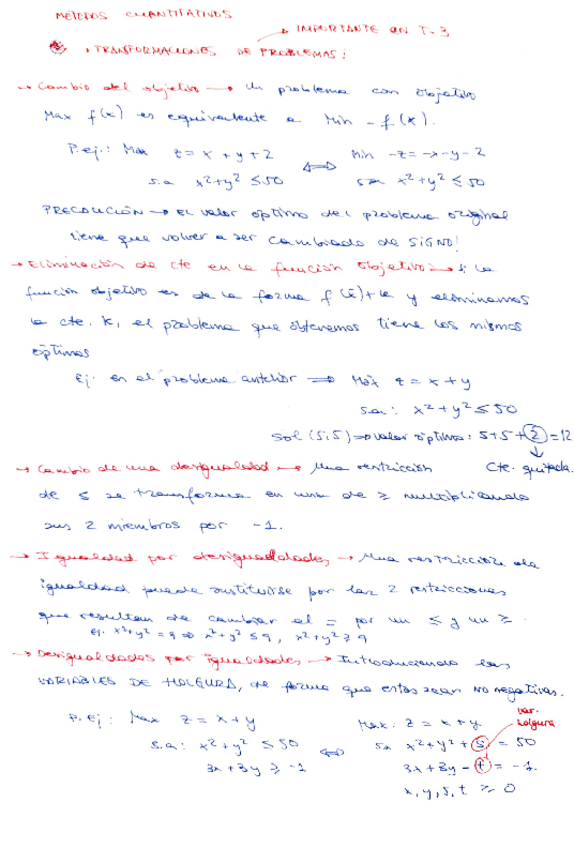 METODOS CUANTITATIVOS
→ IMPORTANTE EN T-3
• TRANSFORMACIONES DE PROBLEMAS!
→ Cambio del objetivo → Un problema con objetivo
Max f(x) es equivalente a Min - f(x).
P.ej.: Max z = x + y + 2 ⟺ Min -z = -x-y-2
s.a x²+y² ≤ 50 s.a x²+y² ≤ 50
PRECAUCIÓN → EL valor óptimo del problema original
tiene que volver a ser cambiado de SIGNO!
→ Eliminación de cte en la función objetivo → Si la
función objetivo es de la forma f(x)+k y eliminamos
la cte. k, el problema que obtenemos tiene los mismos
óptimos
Ej: en el problema anterior ⟹ Máx z = x + y
s.a: x²+y² ≤ 50
Sol (5,5) ⇒ valor óptimo: 5+5+2 = 12
↓
Cte. quitada.
→ Cambio de una desigualdad → Una restricción
de ≤ se transforma en una de ≥ multiplicando
sus 2 miembros por -1.
→ Igualdad por desigualdades → Una restricción de
igualdad puede sustituirse por las 2 restricciones
que resultan de cambiar el = por un ≤ y un ≥.
Ej. x²+y² = 9 ⇒ x²+y² ≤ 9, x²+y² ≥ 9
→ Desigualdades por igualdades → Introduciendo las
VARIABLES DE HOLGURA, de forma que estas sean no negativas.
var. holgura
P. Ej: Max z = x + y Max: z = x + y
s.a: x²+y² ≤ 50 ⟺ s.a x²+y² + s = 50
3x + 3y ≥ -1 3x + 3y - t = -1.
x, y, s, t ≥ 0